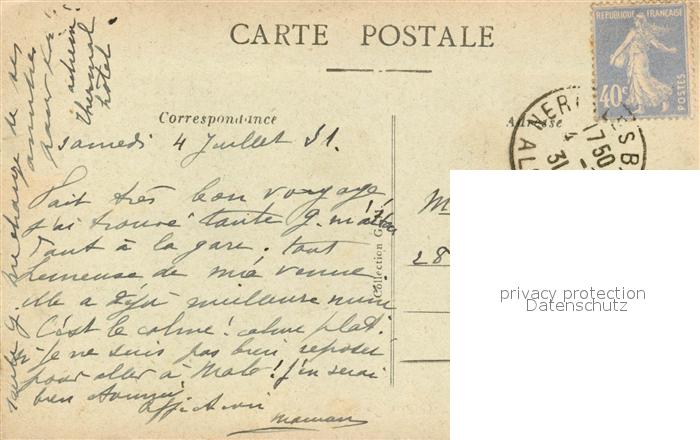 CARTE POSTALE
REPUBLIQUE FRANÇAISE
40c
POSTES
Correspondance
Adresse
NERI LES B
1750
4
31
AL
samedi 4 Juillet 31.
Fait très bon voyage
j'ai trouvé tante g. m'atten
dant à la gare. tout
heureuse de ma venue
elle a déjà meilleure mine
C'est le calme! calme plat.
je ne suis pas bien reposer
pour aller à Malo! J'en serai
bien
affection
maman
tante g me charge de ses
amitiés
pour toi
adresse
thermal
hôtel
Collection G
M
28
privacy protection
Datenschutz